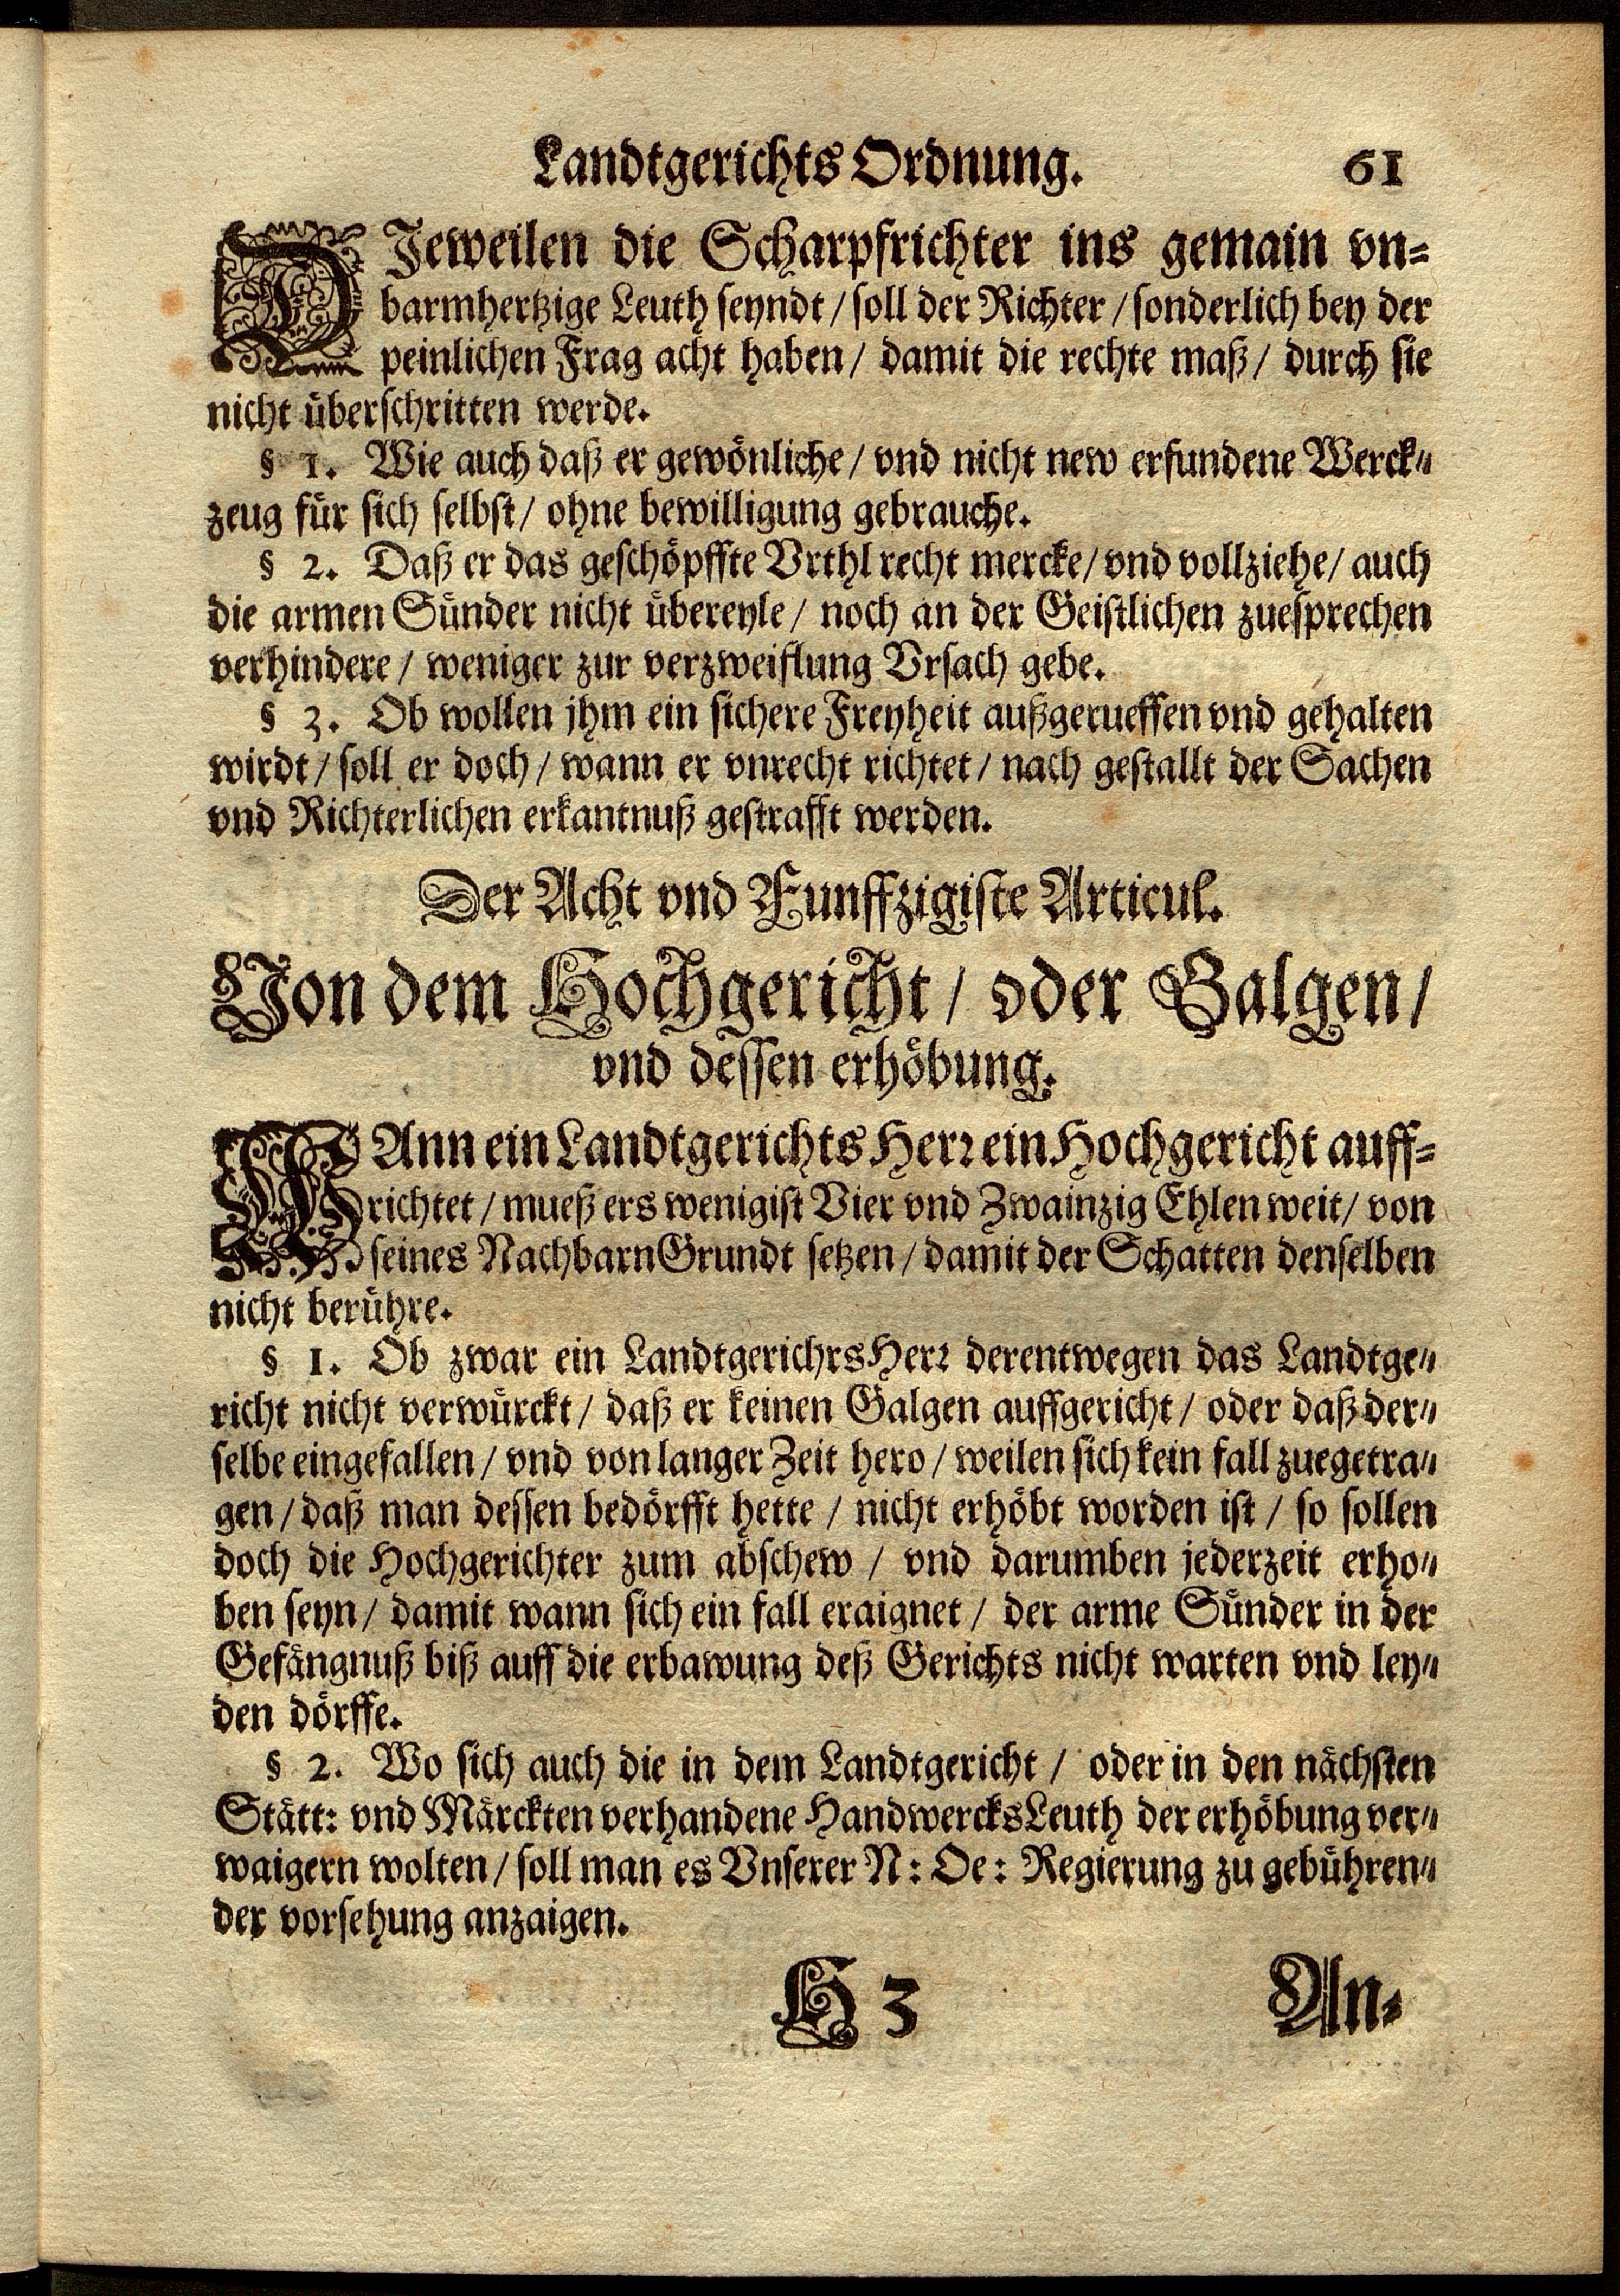 Landtgerichts Ordnung. 61
DJeweilen die Scharpfrichter ins gemain vn=
barmhertzige Leuth seyndt / soll der Richter / sonderlich bey der
peinlichen Frag acht haben / damit die rechte maß / durch sie
nicht überschritten werde.
§ 1. Wie auch daß er gewönliche / vnd nicht new erfundene Werck=
zeug für sich selbst / ohne bewilligung gebrauche.
§ 2. Daß er das geschöpffte Vrthl recht mercke / vnd vollziehe / auch
die armen Sünder nicht übereyle / noch an der Geistlichen zuesprechen
verhindere / weniger zur verzweiflung Vrsach gebe.
§ 3. Ob wollen jhm ein sichere Freyheit außgerueffen vnd gehalten
wirdt / soll er doch / wann er vnrecht richtet / nach gestallt der Sachen
vnd Richterlichen erkantnuß gestrafft werden.
Der Acht vnd Funffzigiste Articul.
Von dem Hochgericht / oder Galgen /
vnd dessen erhöbung.
WAnn ein Landtgerichts Herr ein Hochgericht auff=
richtet / mueß ers wenigist Vier vnd Zwainzig Ehlen weit / von
seines Nachbarn Grundt setzen / damit der Schatten denselben
nicht berühre.
§ 1. Ob zwar ein LandtgerichrsHerr derentwegen das Landtge=
richt nicht verwürckt / daß er keinen Galgen auffgericht / oder daß der=
selbe eingefallen / vnd von langer Zeit hero / weilen sich kein fall zuegetra=
gen / daß man dessen bedörfft hette / nicht erhöbt worden ist / so sollen
doch die Hochgerichter zum abschew / vnd darumben jederzeit erho=
ben seyn / damit wann sich ein fall eraignet / der arme Sünder in der
Gefängnuß biß auff die erbawung deß Gerichts nicht warten vnd ley=
den dörffe.
§ 2. Wo sich auch die in dem Landtgericht / oder in den nächsten
Stätt: vnd Märckten verhandene HandwercksLeuth der erhöbung ver=
waigern wolten / soll man es Vnserer N: Oe: Regierung zu gebühren=
der vorsehung anzaigen.
H 3 An=